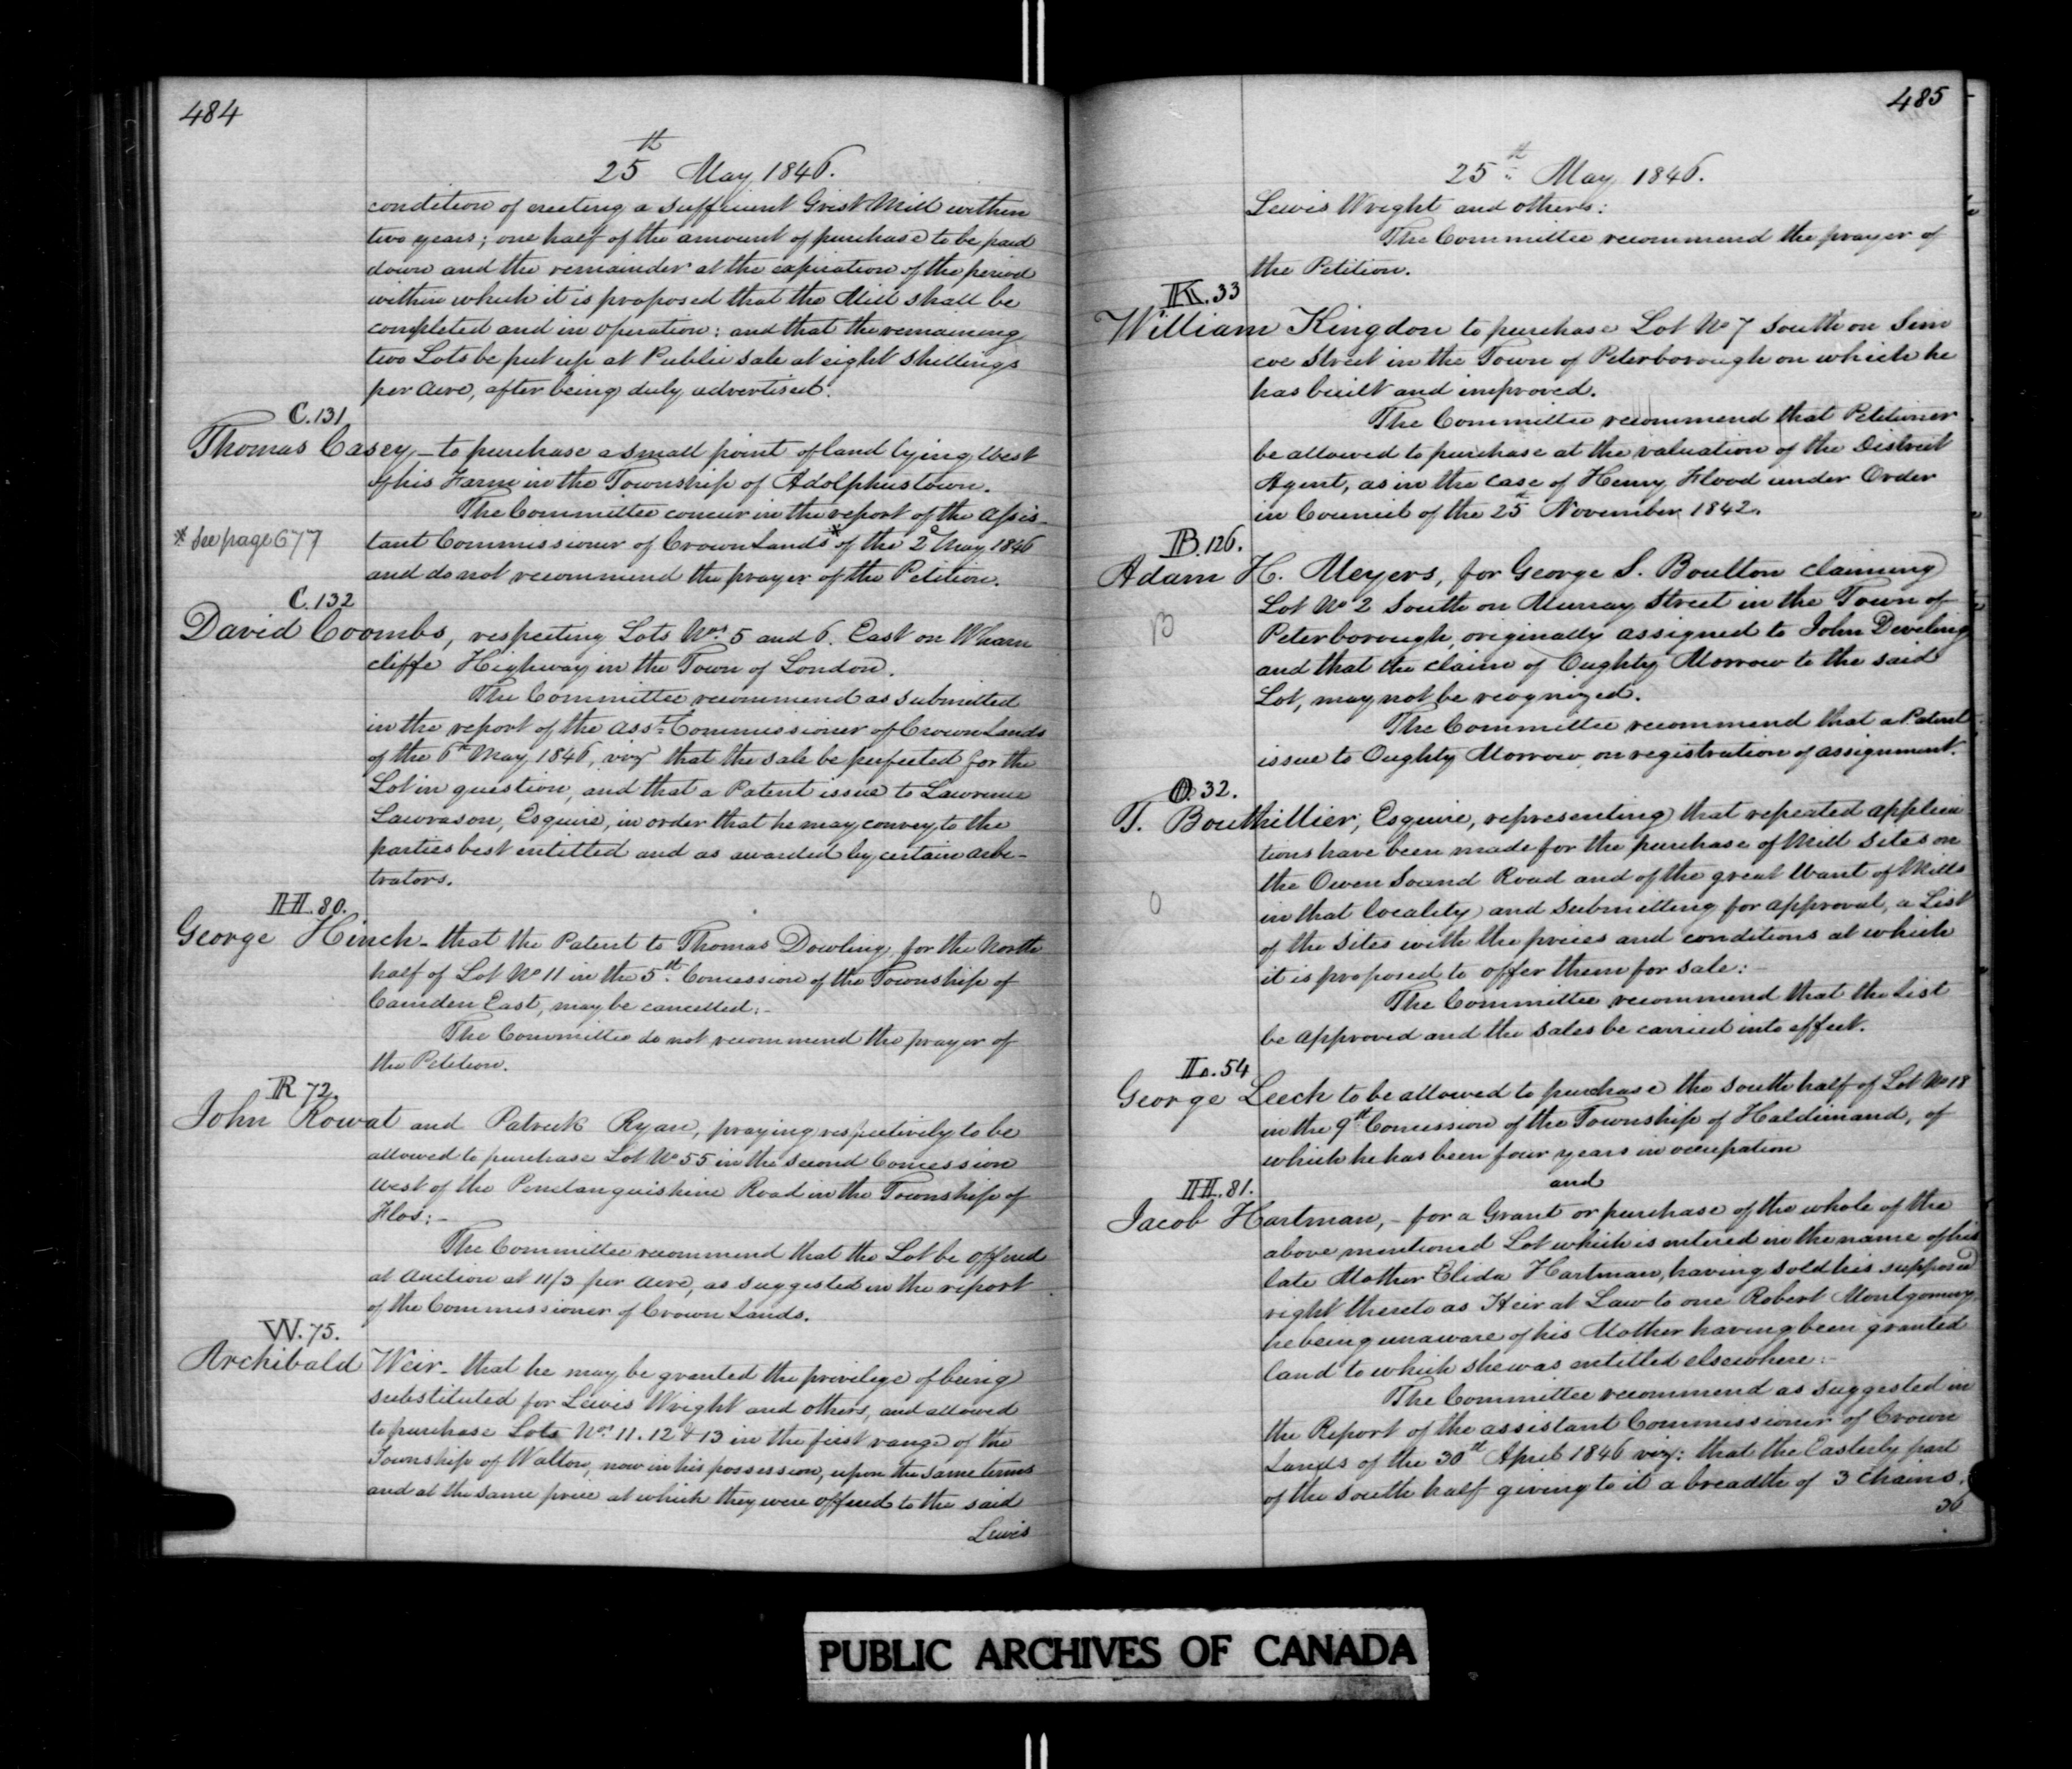 484
25th May 1846.
condition of erecting a sufficient Grist Mill within
two years; one half of the amount of purchase to be paid
down and the remainder at the expiration of the period
within which it is proposed that the Mill shall be
completed and in operation: and that the remaining
two Lots be put up at Public sale at eight shillings
per acre, after being duly advertised.
C. 131
Thomas Casey, - to purchase a small point of land lying West
of his Farm in the Township of Adolphustown.
The Committee concur in the report of the Assis-
* See page 677
tant Commissioner of Crown Lands * of the 2d May 1846
and do not recommend the prayer of the Petition.
C. 132
David Coombs, respecting Lots Nos. 5 and 6. East on Wharn
cliffe Highway in the Town of London.
The Committee recommend as submitted
in the report of the Asst. Commissioner of Crown Lands
of the 6th May 1846, viz that the sale be perfected for the
Lot in question, and that a Patent issue to Lawrence
Lawrason, Esquire, in order that he may convey to the
parties best entitled and as awarded by certain arbi-
trators.
H. 80.
George Hinch - that the Patent to Thomas Dowling for the North
half of Lot No 11 in the 5th Concession of the Township of
Camden East, may be cancelled: -
The Committee do not recommend the prayer of
the Petition.
R 72.
John Rowat and Patrick Ryan, praying respectively to be
allowed to purchase Lot No 55 in the second Concession
West of the Penetanguishine Road in the Township of
Flos: -
The Committee recommend that the Lot be offered
at Auction at 11/3 per acre, as suggested in the report
of the Commissioner of Crown Lands.
W. 75.
Archibald Weir - that he may be granted the privilege of being
substituted for Lewis Wright and others, and allowed
to purchase Lots Nos. 11. 12 & 13 in the first range of the
Township of Walton, now in his possession, upon the same terms
and at the same price at which they were offered to the said
Lewis
485
25th May 1846.
Lewis Wright and others:
The Committee recommend the prayer of
the Petition.
K. 33
William Kingdon to purchase Lot No 7 South on Sim
coe Street in the Town of Peterborough on which he
has built and improved.
The Committee recommend that Petitioner
be allowed to purchase at the valuation of the District
Agent, as in the case of Henry Flood under Order
in Council of the 25th November 1842.
B. 126.
Adam H. Meyers, for George S. Boulton claiming
Lot No 2 South on Murray Street in the Town of
B
Peterborough, originally assigned to John Develing
and that the claim of Oughty Morrow to the said
Lot, may not be recognized.
The Committee recommend that a Patent
issue to Oughty Morrow, on registration of assignment.
O. 32.
T. Bouthillier, Esquire, representing that repeated applica
tions have been made for the purchase of Mill Sites on
the Owen Sound Road and of the great Want of Mills
O
in that locality and submitting for approval, a List
of the sites with the prices and conditions at which
it is proposed to offer them for sale: -
The Committee recommend that the List
be approved and the sales be carried into effect.
L. 54
George Leech to be allowed to purchase the South half of Lot No 18
in the 9th Concession of the Township of Haldimand, of
which he has been four years in occupation
and
H. 81.
Jacob Hartman, - for a Grant or purchase of the whole of the
above mentioned Lot which is entered in the name of his
late Mother Elida Hartman, having sold his supposed
right thereto as Heir at Law to one Robert Montgomery,
he being unaware of his Mother having been granted
land to which she was entitled elsewhere: -
The Committee recommend as suggested in
the Report of the assistant Commissioner of Crown
Lands of the 30th April 1846 viz: that the Easterly part
of the South half giving to it a breadth of 3 Chains,
36
PUBLIC ARCHIVES OF CANADA